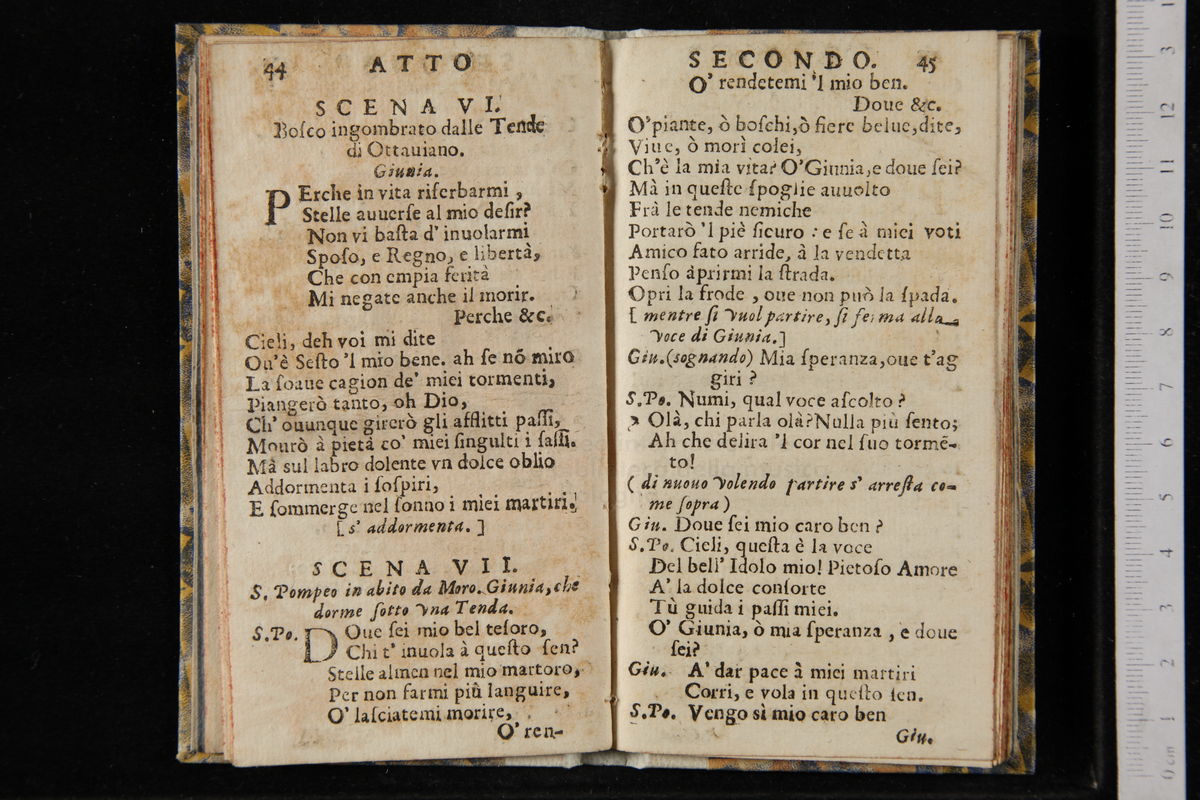 44 ATTO
SCENA VI.
Boſco ingombrato dalle Tende
di Ottauiano.
Giunia.
PErche in vita riſerbarmi,
Stelle auuerſe al mio deſir?
Non vi baſta d' inuolarmi
Spoſo, e Regno, e libertà,
Che con empia ferità
Mi negate anche il morir.
Perche &c.
Cieli, deh voi mi dite
Ou'è Seſto 'l mio bene. ah ſe nõ miro
La ſoaue cagion de' miei tormenti,
Piangerò tanto, oh Dio,
Ch' ouunque girerò gli afflitti paſſi,
Mourò à pietà co' miei ſingulti i ſaſſi.
Mà sul labro dolente vn dolce oblio
Addormenta i ſoſpiri,
E ſommerge nel ſonno i miei martiri.
[ s' addormenta. ]
SCENA VII.
S. Pompeo in abito da Moro. Giunia, che
dorme ſotto vna Tenda.
S.Po. DOue ſei mio bel teſoro,
Chi t' inuola à queſto ſen?
Stelle almen nel mio martoro,
Per non farmi più languire,
O' laſciatemi morire,
O' ren-
SECONDO. 45
O' rendetemi 'l mio ben.
Doue &c.
O' piante, ò boſchi, ò fiere belue, dite,
Viue, ò morì colei,
Ch'è la mia vita? O' Giunia, e doue ſei?
Mà in queſte ſpoglie auuolto
Frà le tende nemiche
Portarò 'l piè ſicuro : e ſe à miei voti
Amico fato arride, à la vendetta
Penſo àprirmi la ſtrada.
Opri la frode , oue non può la ſpada.
[ mentre ſi vuol partire, ſi ferma alla
voce di Giunia.]
Giu.(sognando) Mia ſperanza, oue t'ag
giri ?
S.Po. Numi, qual voce aſcolto ?
Olà, chi parla olà? Nulla più ſento;
Ah che delira 'l cor nel ſuo tormẽ-
to!
( di nuouo volendo partire s' arreſta co-
me ſopra )
Giu. Doue ſei mio caro ben ?
S.Po. Cieli, queſta è la voce
Del bell' Idolo mio! Pietoſo Amore
A' la dolce conſorte
Tù guida i paſſi miei.
O' Giunia, ò mia ſperanza , e doue
ſei?
Giu. A' dar pace à miei martiri
Corri, e vola in queſto ſen.
S.Po. Vengo sì mio caro ben
Giu.
0 cm 1 2 3 4 5 6 7 8 9 10 11 12 13